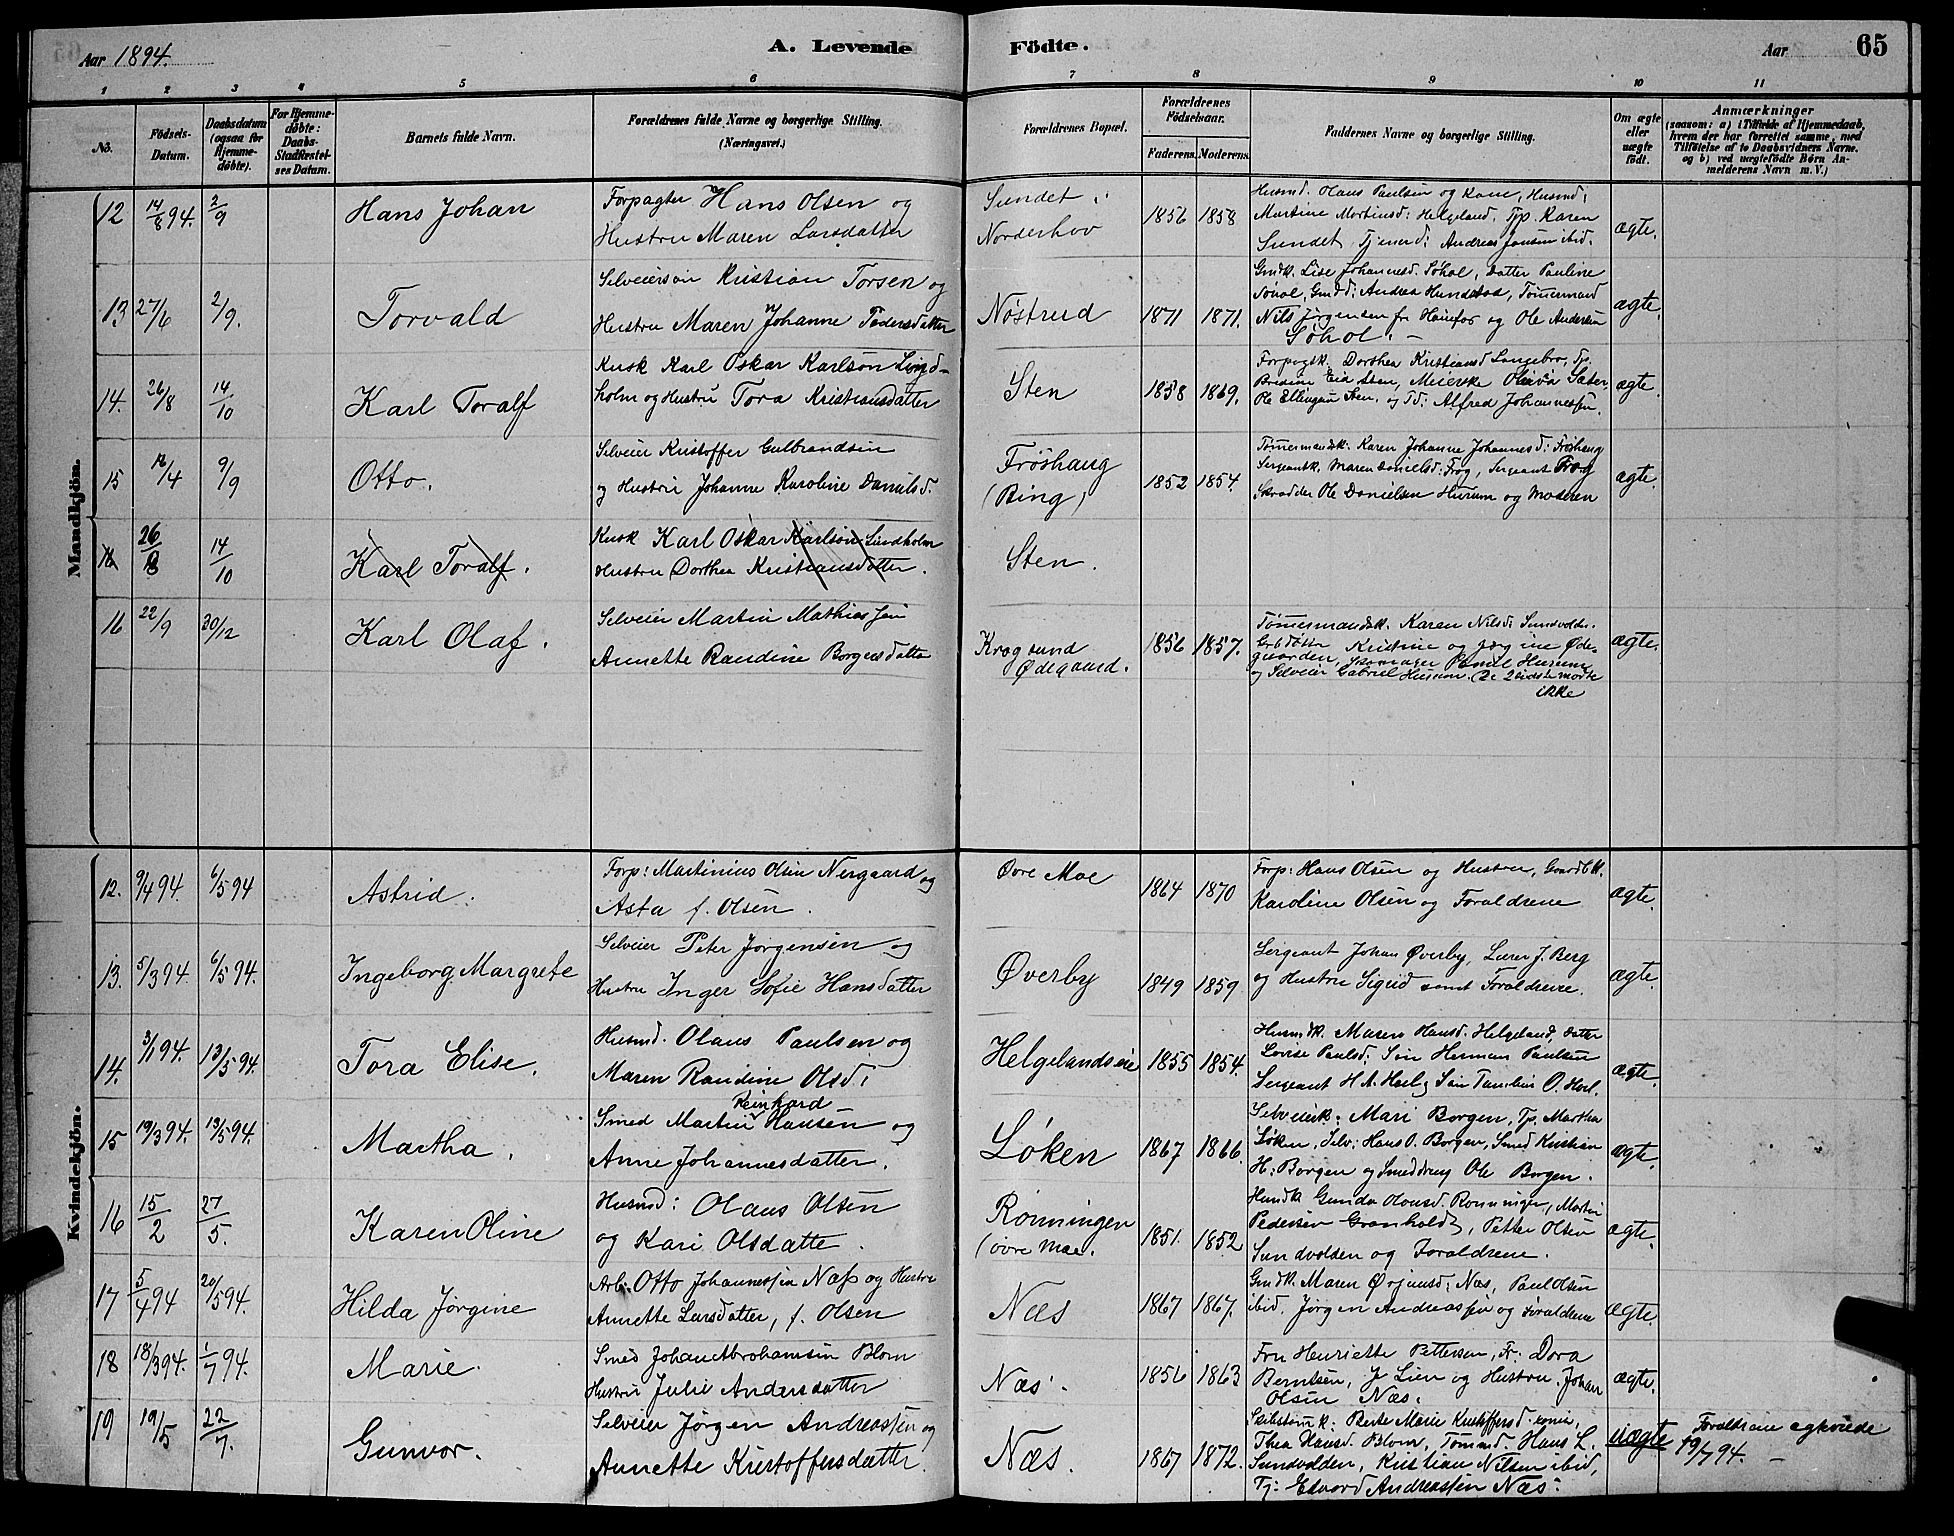 Aar 1894.
A. Levende
Födte.
Aar
65
1 2 3 4 5 6 7 8 9 10 11
No.
Födsels-Datum.
Daabsdatum (ogsaa for Hjemme-döbte).
For Hjemme-döbte: Daabs-Stadfæstel-ses Datum.
Barnets fulde Navn.
Forældrenes fulde Navne og borgerlige Stilling.
(Næringsvei.)
Forældrenes Bopæl.
Forældrenes Födselsaar.
Faderens. Moderens.
Faddernes Navne og borgerlige Stilling.
Om ægte eller uægte födt.
Anmærkninger
(saasom: a) i Tilfælde af Hjemmedaab,
hvem der har forrettet samme, med
Tilföielse af to Daabsvidners Navne.
og b) ved uægtefödte Börn An-
melderens Navn m.V.)
Mandkjön.
12 14/8 94. 2/9 Hans Johan
Forpagter Hans Olsen og
Hustru Maren Larsdatter
Sundet i
Norderhov
1856 1858
Husmd. Olaus Paulsen og Kone, Husmd:
Martine Martinsd: Helgeland, Tjp. Karen
Sundet, Tjenerd: Andreas Jansen ibid.
ægte.
13 27/6 2/9. Torvald
Selveiersøn Kristian Torsen og
Hustru Maren Johanne Pedersdatter
Nøstrud
1871 1871.
Gmdk. Lise Johannesd. Søhol, Datter Pauline
Søhol, Gmd: Andrea Hundstad, Tømermand
Nils Jørgensen fra Hønefos og Ole Andersen
Søhol. -
ægte.
14. 26/8 14/10 Karl Toralf
Kusk Karl Oskar Karlson Lind-
holm og Hustru Tora Kristiansdatter
Sten
1858 1869.
Forpagtk. Dorthea Kristiansd Langebro, Tjp.
Bredine Eid Sten, Meierske Olivia Sæter
Ole Ellingsen Sten, og Td: Alfred Johannessen.
ægte.
15 18/4 9/9 Otto.
Selveier Kristoffer Gulbrandsen
og Hustru Johanne Karoline Danielsd.
Frøshaug
(Bing)
1852 1854.
Tømermandsk. Karen Johanne Johannesd: Frøshaug
Sergeantk. Maren Danielsd: Frog, Sergeant Frog
Skrædder Ole Danielsen Hurum og Moderen
ægte.
16 26/8 14/10 Karl Toralf.
Kusk Karl Oskar Karlson Lindholm
Hustru Dorthea Kristiansdatter.
Sten.
16 22/9 30/12 Karl Olaf.
Selveier Martin Mathiesen
Annette Randine Borgersdatter
Krogsund
Ødegaard.
1856 1857.
Tømermandsk. Karen Nilsd: Sundvolden.
Kristine og Jørgine Øde-
gaarden, Skomager Paul Husum
og Selveier Gabriel Husum. (De 2 sidste mødte
ikke
ægte.
Kvindekjön.
12. 9/4 94. 6/5 94 Astrid.
Forp: Martinius Olsen Nergaard og
Asta f. Olsen.
Øvre Moe
1864 1870
Forp: Hans Olsen og Hustru, Gaardbk.
Karoline Olsen og Forældrene
ægte.
13. 5/3 94. 6/5 94. Ingeborg Margrete
Selveier Peter Jørgensen og
Hustru Inger Sofie Hansdatter
Øverby
1849 1859.
Sergeant Johan Øverby, Lærer J. Berg
og Hustru Sigrid samt Forældrene.
ægte.
14. 3/1 94. 13/5 94. Tora Elise.
Husmd. Olaus Paulsen og
Maren Randine Olsd:
Helgelandseie
1855 1854.
Husmdk. Maren Hansd. Helgeland, Datter
Lovise Paulsd: Søn Herman Paulsen
Sergeant H. A. Hoel, Søn O. Hoel.
ægte.
15 19/3 94. 13/5 94. Martha.
Reinhard
Smed Martin Hansen og
Anne Johannesdatter.
Løken
1867 1866.
Selveierk: Mari Borgen, Tjp. Martha
Løken, Selv: Hans O. Borgen, Smed Kristian
H: Borgen og Smeddreng Ole Borgen.
ægte.
16 15/2 27/5. Karen Oline
Husmd: Olaus Olsen
og Kari Olsdatte.
Rønningen
(øvre Moe.
1851. 1852
Husmdk Gunda Olausd. Rønningen, Martin
Pedersen Gramholdt, Petter Olsen
Sundvolden og Forældrene.
ægte.
17 5/4 94 20/5 94. Hilda Jørgine
Arb: Otto Johannessen Næss og Hustru
Annette Larsdatter, f. Olsen
Næs
1867 1867.
Gmdk. Maren Ørjansd: Næs, Paul Olsen
ibid. Jørgen Andreassen og Forældrene
ægte.
18 18/3 94. 1/7 94. Marie.
Smed Johan Abrahamsen Blom
Hustru Julie Andersdatter
Næs.
1856 1863
Fru Henriette Pettersen, Fr: Dora
Berntsen, J. Lien og Hustru. Johan
Olsen Næs.
ægte.
19 19/5 22/7. Gunvor.
Selveier Jørgen Andreassen og
Annette Kristoffersdatter.
Næs.
1867 1872.
Berte Marie Kristoffersd.
Thea Hansd. Blom, Tømmd. Hans L.
Sundvolden, Kristian Nilsen ibid,
Tj: Edvard Andreassen Næs:
uægte
Forældrene egteviede
19/7 94. -